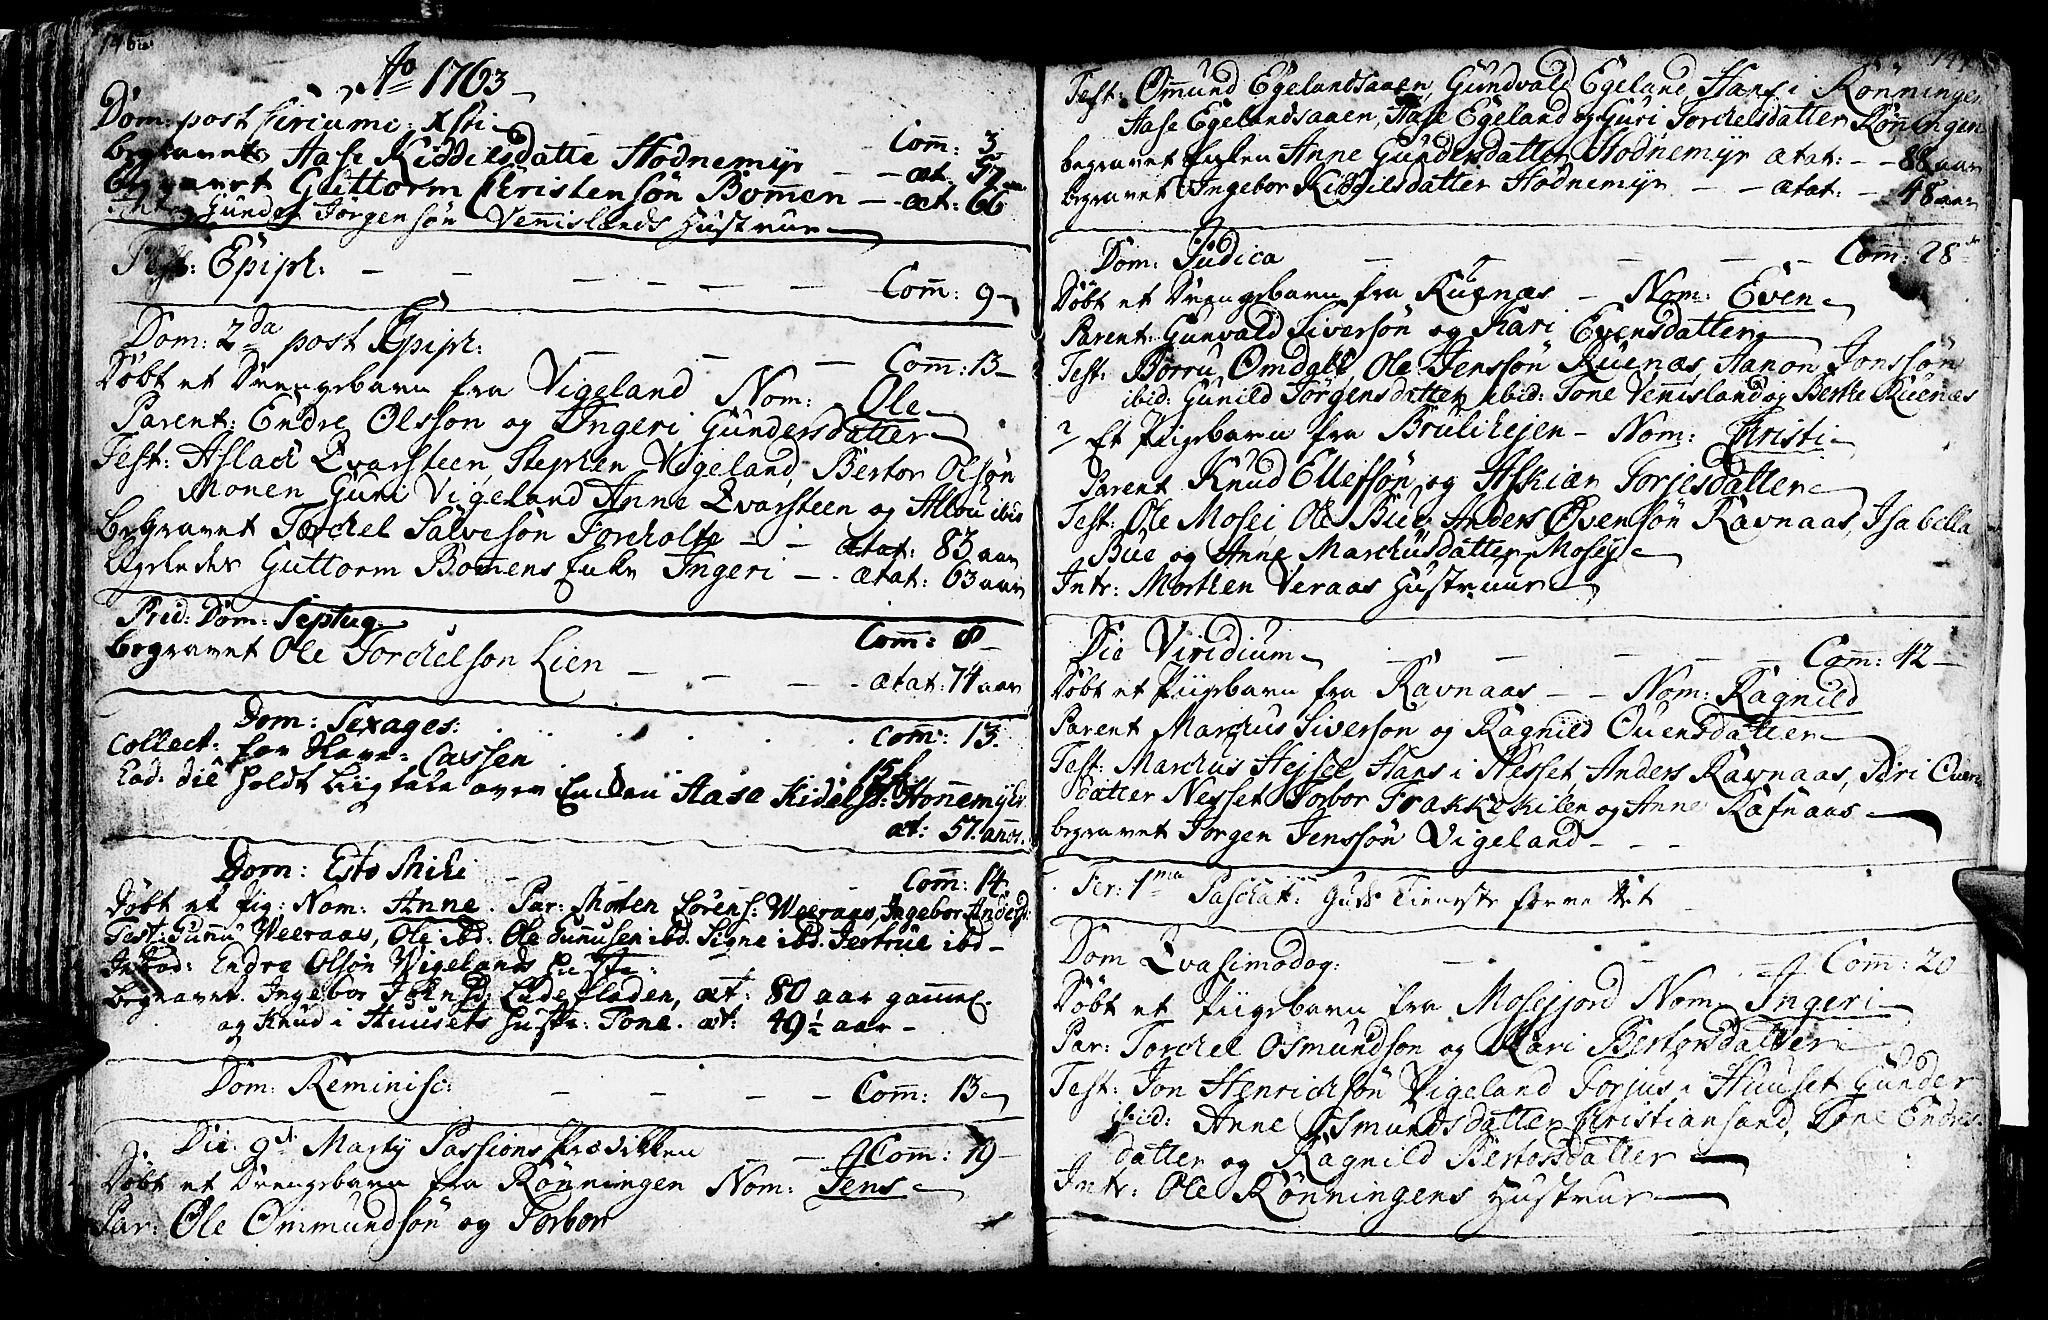 146
Ao 1763
Dom: post Circumc: Xsti
Comm: 3
begravet Aase Kiddelsdatter Hodnemyr - - æt. 57
begravet Guttorm Christensøn Bomen - - æt: 66
Intr: Gunder Jörgensön Vennislands Hustrue
Fest: Epiph: - - - - - - Comm: 9
Dom: 2da post Epiph: - - - Comm: 13
Döbt et Drengebarn fra Vigeland Nom: Ole
Parent: Endre Olsson og Ingeri Gundersdatter
Test: Aslach Qvarsteen, Stephen Vigeland, Bertor Olsön
Monen Guri Vigeland Anne Qvarsteen og ibid
begravet Torchel Salvesön Forcholte - - ætat: 83 aar
ligeledes Guttorm Bomens Enke Ingeri - - ætat: 63 aar
Prid: Dom: Septuag: Comm: 8
begravet Ole Torchelson Lien - - - - ætat: 74 aar
Dom: Sexages: Comm: 13.
Collect: for Hav: Cassen
15 ſ
Ead: die holdt Liigtale over Aase Kidels: Honnemyhr
æt: 57. annor.
Dom: Esto Mihi Comm: 14.
Döbt et Pig: Nom: Anne. Par: Morten Sörens: Weeraas, Ingebor Anders
Test: Gunnu Weeraas, Ole ibd: Ole Gunnusen ibd. Signe ibd. Jertrue ibd -
Introd: Endre Olsön Wigelands Hustr:
Begravet. Ingebor Eidefladen, æt: 80 aar gammel.
og Knud i Huusets Hustr: Tone. æt: 49½ aar -
Dom: Reminisc: - - - - Comm: 13
Die 9di Martij Passions Prædikken - - Comm: 19
Döbt et Drengebarn fra Rönningen Nom: Jens
Par: Ole Ommundsön og Torbor
Test: Ommund Egelandsaaen, Gundvald Egeland Hans i Rönningen
Aase Egelandsaaen, Aase Egeland og Guri Torchelsdatter Rönningen
begravet Enken Anne Gundersdatter Hodnemyr ætat: - - 88 aar
begravet Ingebor Kiddelsdatter Hodnemyr - - ætat: - - 48 aar
Dom: Judica - - - - - Comm: 28
Döbt et Drengebarn fra Ruenæs - Nom: Even
Parent: Gunvald Siversön og Kari Evensdatter
Test: Börru Omdahl Ole Jenssön Ruenæs, Hanon Jonssön
ibid: Gunild Jörgensdatter ibid: Tone Vennisland og Berthe Ruenæs
2/ Et Piigebarn fra Brulihejen - Nom: Christi
Parent Knud Ellefsön og Askier Torjesdatter
Test: Ole Mosei, Ole Bue Anders Ovensön Ravnaas, Isabella
Bue og Anne Marchusdatter Mosey
Intr: Morthen Veraas Hustruur
Die Viridium - - - - - Comm: 42
Döbt et Piigebarn fra Ravnaas - - Nom: Ragnild
Parent Marchus Siverson og Ragnild Ouensdatter
Test: Marchus Hejsel Hans i Nesset Anders Ravnaas, Siri Ouens
datter Nesset Torbor Frakkekilen og Anne Rafnaas
begravet Jorgen Jenssön Vigeland - - -
Fer: 1ma Paschat: Guds Tieneste forrettet
Dom Qvasimodog: - - - Comm: 20
Döbt et Piigebarn fra Mosejord Nom Ingeri
Par: Torchel Osmundson og Kari Bertorsdatter
Test: Jon Henrichsön Vigeland Torjus i Huuset Gunder
ibid: Anne Osmundsdatter Christiansand, Tone Endres
datter og Ragnild Bertorsdatter
Intr: Ole Rönningens Hustrur